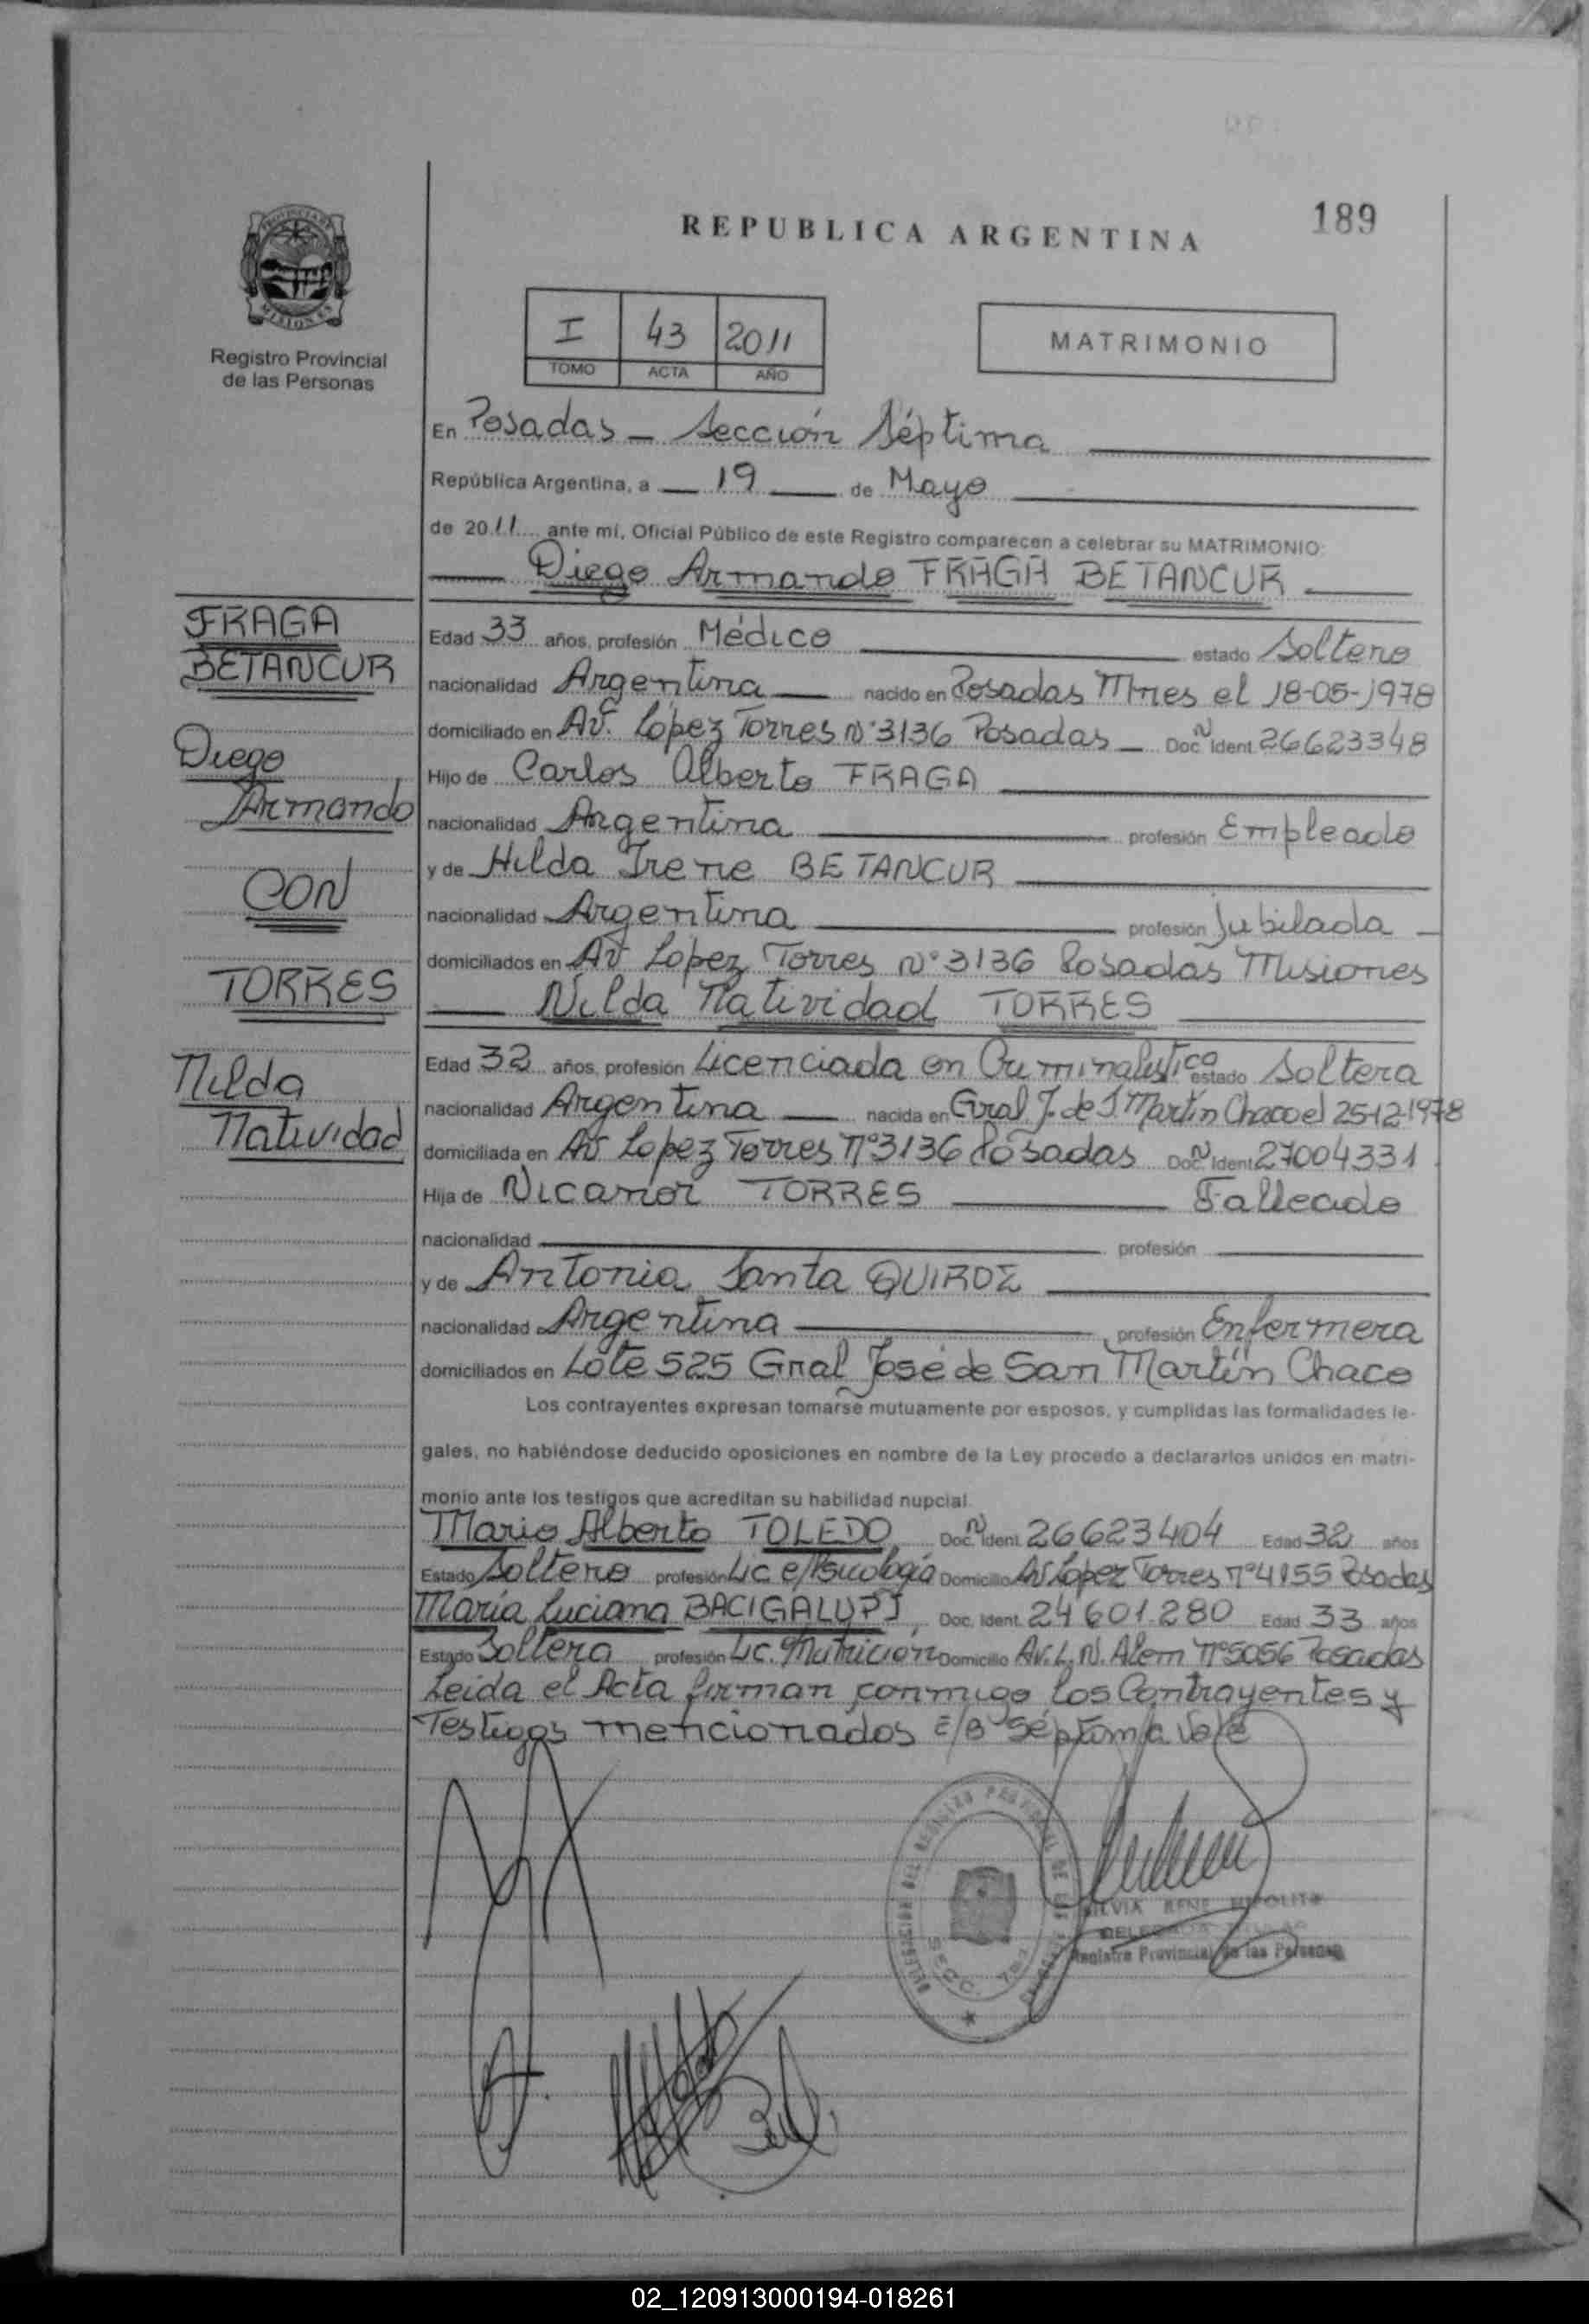 189
REPUBLICA ARGENTINA
PROVINCIA DE
MISIONES
Registro Provincial
de las Personas
I 43 2011
TOMO ACTA AÑO
MATRIMONIO
En Posadas - Sección Séptima
República Argentina, a 19 de Mayo
de 2011 ante mí, Oficial Público de este Registro comparecen a celebrar su MATRIMONIO:
Diego Armando FRAGA BETANCUR
FRAGA
BETANCUR
Diego
Armando
CON
TORRES
Nilda
Natividad
Edad 33 años, profesión Médico estado Soltero
nacionalidad Argentina nacido en Posadas Mnes el 18-05-1978
domiciliado en Av. López Torres N° 3136 Posadas - Doc. N Ident. 26623348
Hijo de Carlos Alberto FRAGA
nacionalidad Argentina profesión Empleado
y de Hilda Irene BETANCUR
nacionalidad Argentina profesión Jubilada
domiciliados en Av López Torres N° 3136 Posadas Misiones
Nilda Natividad TORRES
Edad 32 años, profesión Licenciada en Criminalística estado Soltera
nacionalidad Argentina nacida en Gral J. de S. Martín Chaco el 25-12-1978
domiciliada en Av López Torres N° 3136 Posadas Doc. N Ident. 27004331
Hija de Nicanor TORRES Fallecido
nacionalidad profesión
y de Antonia Santa QUIROZ
nacionalidad Argentina profesión Enfermera
domiciliados en Lote 525 Gral José de San Martín Chaco
Los contrayentes expresan tomarse mutuamente por esposos, y cumplidas las formalidades le-
gales, no habiéndose deducido oposiciones en nombre de la Ley procedo a declararlos unidos en matri-
monio ante los testigos que acreditan su habilidad nupcial.
Mario Alberto TOLEDO Doc. N Ident. 26623404 Edad 32 años
Estado Soltero profesión Lic e/Psicología Domicilio Av López Torres N° 4155 Posadas
María Luciana BACIGALUPI Doc. Ident. 24601.280 Edad 33 años
Estado Soltera profesión Lic. Nutrición Domicilio Av. L. N. Alem N° 5056 Posadas
Leida el Acta firman conmigo los Contrayentes y
Testigos mencionados E/B Séptima Vale
SILVIA RENE HIPOLITO
DELEGADA
Registro Provincial de las Personas
SECC. 7ma
02_120913000194-018261